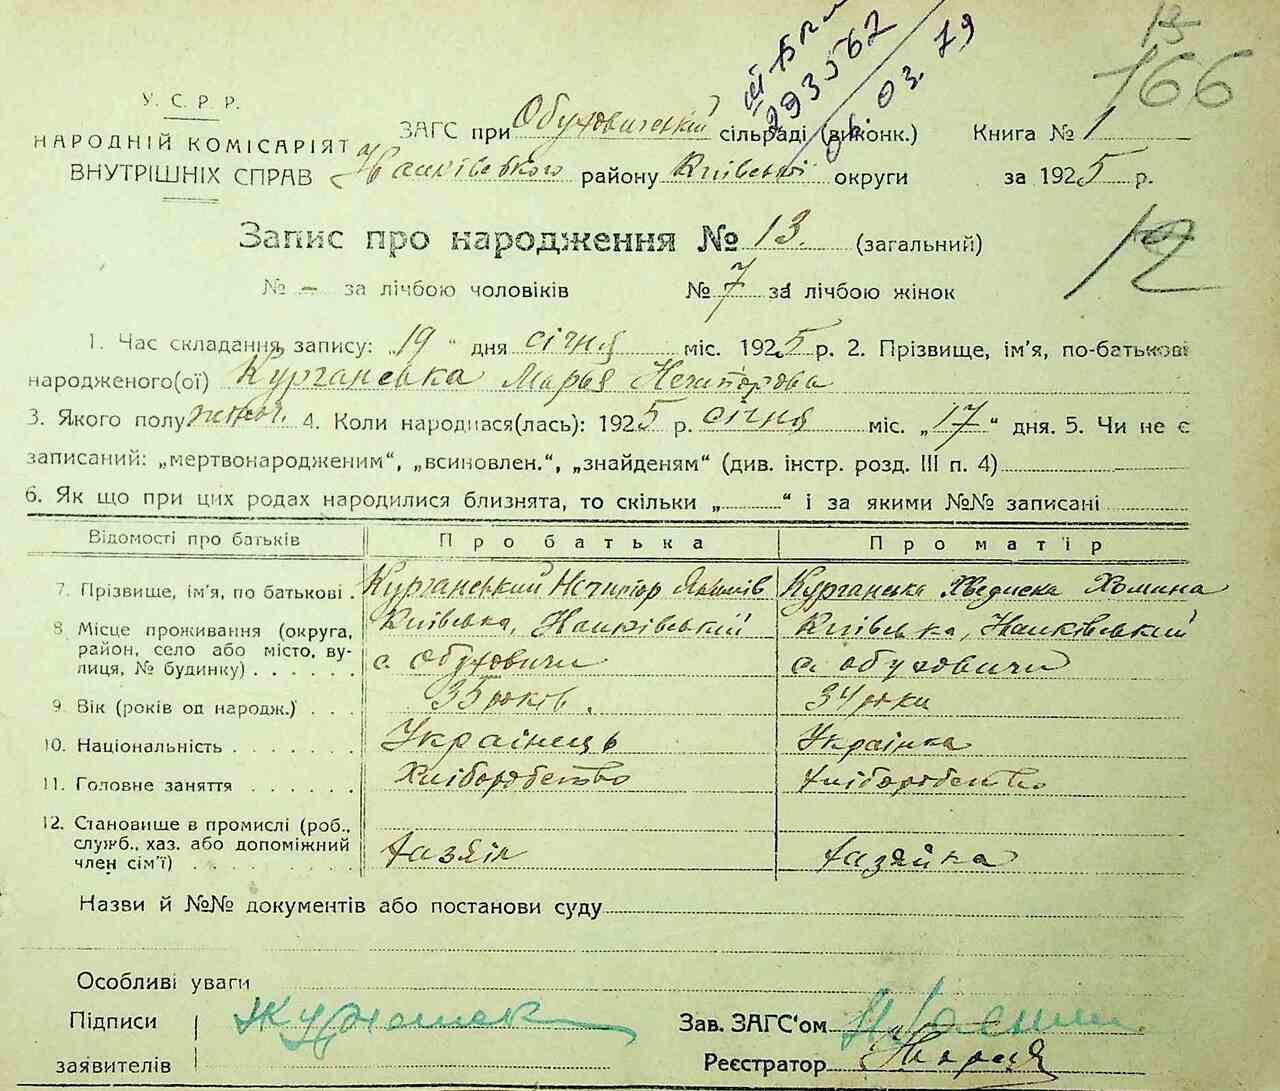 293562
03. 79
13
166
У. С. Р. Р.
НАРОДНІЙ КОМІСАРІЯТ
ВНУТРІШНІХ СПРАВ
ЗАГС при Обуховичській сільраді (виконк.) Книга № 1
Иванківського району Київської округи за 1925 р.
Запис про народження № 13. (загальний)
12
№ – за лічбою чоловіків № 7 за лічбою жінок
1. Час складання запису: „19“ дня січня міс. 1925 р. 2. Прізвище, ім'я, по-батькові
народженого(ої) Курганська Марья Нечипорова
3. Якого полу жіноч. 4. Коли народився(лась): 1925 р. січня міс. „17“ дня. 5. Чи не є
записаний: „мертвонародженим“, „всиновлен.“, „знайденям“ (див. інстр. розд. III п. 4)
6. Як що при цих родах народилися близнята, то скільки „ “ і за якими №№ записані
Відомості про батьків Про батька Про матір
7. Прізвище, ім'я, по батькові . Курганський Нечипор Якимів Курганська Хведиска Хомина
8. Місце проживання (округа, район, село або місто, вулиця, № будинку) . . . . . . Київська, Иванківський с. Обуховичи Київська, Иванківський с. Обуховичи
9. Вік (років од народж.) . . . 35 років. 34 роки
10. Національність . . . . . . . Українець Українка
11. Головне заняття . . . . . . Хліборобство Хліборобство
12. Становище в промислі (роб., служб., хаз. або допоміжний член сім'ї) . . . . . . . хазяїн хазяйка
Назви й №№ документів або постанови суду
Особливі уваги
Підписи
заявителів
Зав. ЗАГС'ом
Реєстратор